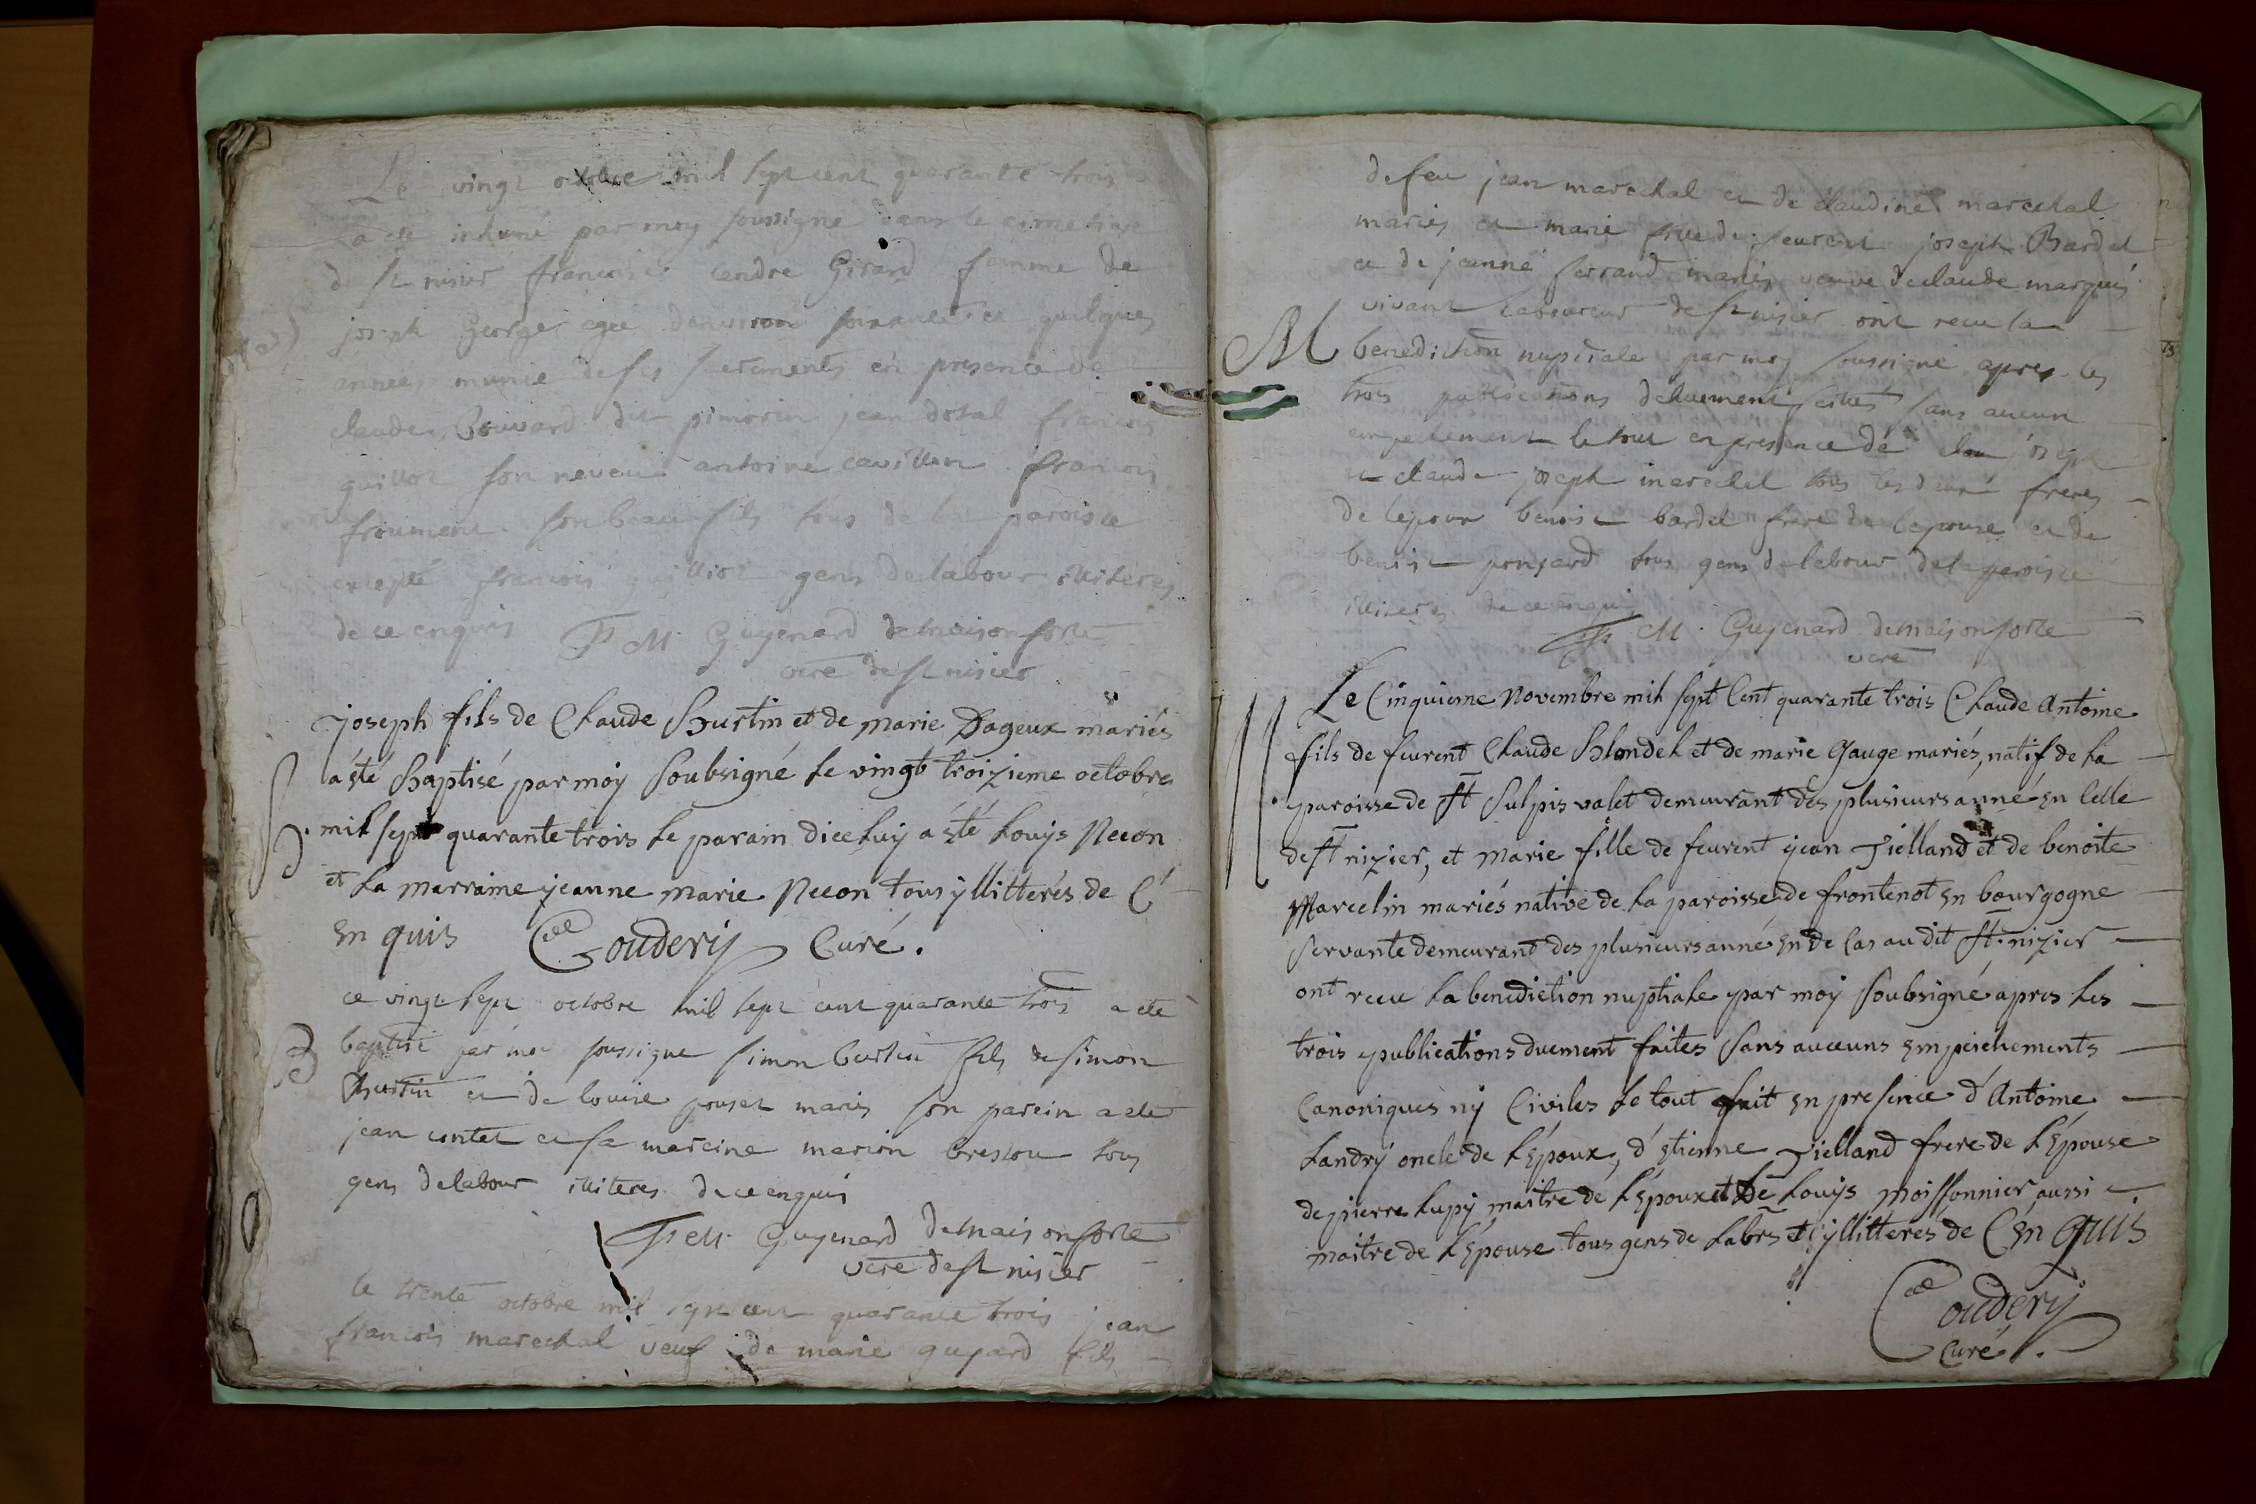 Le vingt octobre mil sept cent quarante trois
a ete inhumé par moy soussigné dans le cimetiere
de st nisier francoise cendre Girard femme de
joseph George agée denviron soixante et quelques
années munie de ses sacrements en presence de
claude Bouvard dit pimorin jean dotal francois
guillot son neveu antoine cavillon francois
froument son beau fils tous de la paroisse
excepté francois guilliot gens de labour illiteres
de ce enquis F M. Guyenard de maisonforte
vicre de st nisier
joseph fils de Claude Burtin et de marie Dageux mariés
a êté Baptisé par moy soubsigné le vingt troizieme octobre
B. mil sept quarante trois le parain diceluy a êté Louys Necon
et la marraine jeanne marie Necon tous yllitterés de C
en quis Gouderÿ Curé.
ce vingt sept octobre mil sept cent quarante trois a ete
B baptisé par moi soussigne simon burtin fils de simon
burtin et de louise ponset mariés son parein a ete
jean contet et sa mareine marion bressou tous
gens de labour illiteres de ce enquis
F M. Guyenard de maisonforte
vicre de st nisier
le trente octobre mil sept cent quarante trois jean
francois marechal veuf de marie guyard fils
de feu jean marechal et de claudine marechal
mariés et marie fille de feurent joseph Bardel
et de jeanne ferrand mariés veuve de claude marquis
vivant laboureur de st nisier ont recu la
M benediction nuptiale par moy soussigné apres les
trois publications dehuement faittes sans aucun
empechement le tout en presence de
et claude joseph marechal tous les deux freres
de lepoux benoist bardel frere de lepouse et de
benoist ponsard tous gens de labour de la paroisse
illiteres de ce enquis
F. M. Guyenard de maisonforte
vicre
Le Cinquieme Novembre mil sept Cent quarante trois Claude Antoine
fils de feurent Claude Blondel et de marie Gauge mariés, natif de la
M. paroisse de st Sulpis valet demeurant des plusieurs anné en Celle
de st nizier, et marie fille de feurent jean Vielland et de benoite
Marcelin mariés native de la paroisse de frontenot en bourgogne
servante demeurant des plusieurs anné en de Cas au dit st. nizier
ont recu la benediction nuptiale par moy soubsigné apres les
trois publications duement faites sans aucuns empeichements
Canoniques ny Civiles le tout fait en presence d'Antoine
Landry oncle de l'Époux, d'etienne Vielland frere de l'Épouse
de pierre Lupy maitre de l'Epoux et de Louys Moissonnier aussi
maitre de l'Épouse tous gens de Labrs et yllitterés de C en quis
Gouderÿ
Curé.